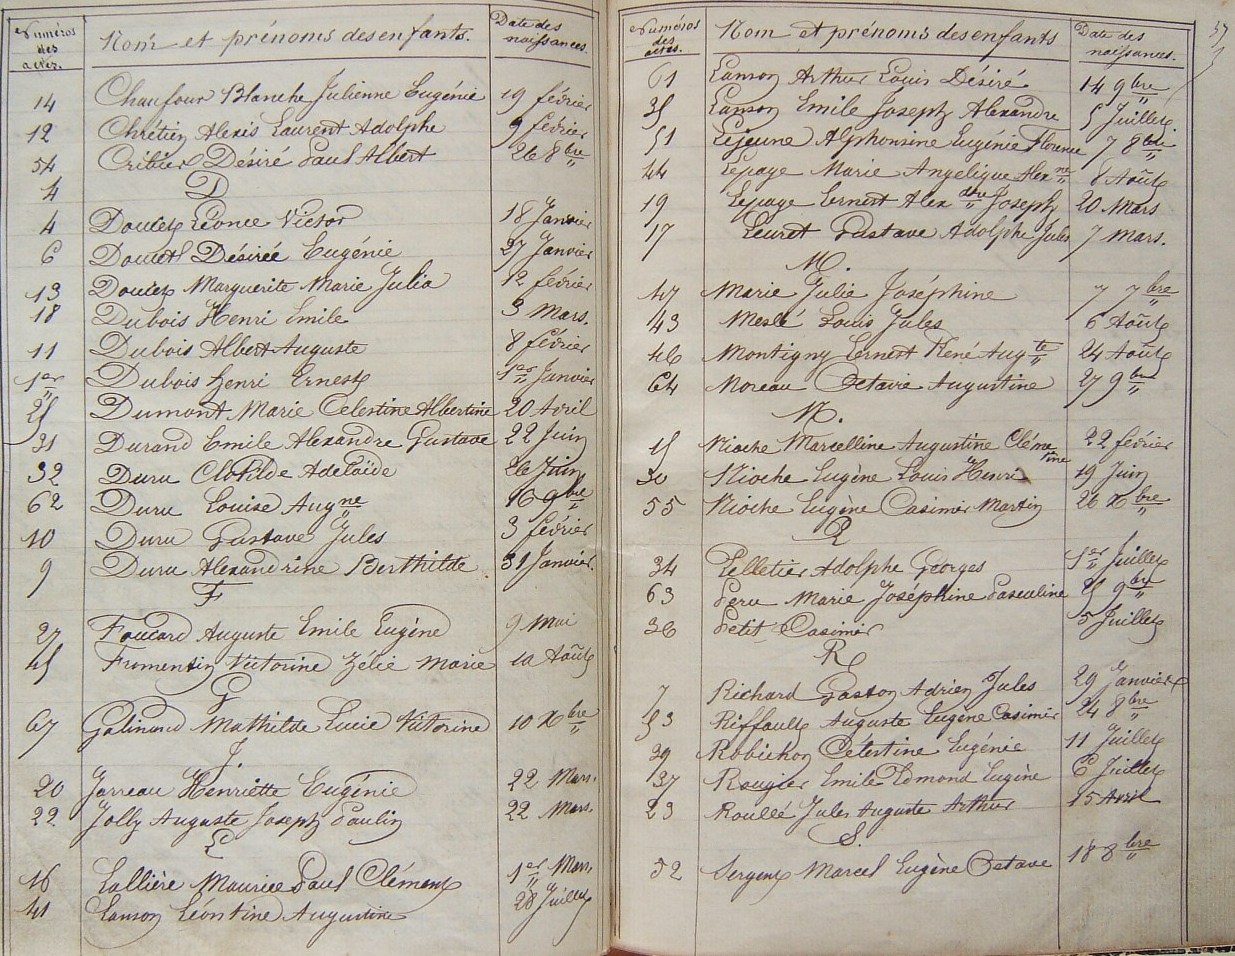 Numéros des actes. Nom et prénoms des enfants. Date des naissances.
14 Chaufour Blanche Julienne Eugénie 19 février
12 Chrétien Alexis Laurent Adolphe 9 février
54 Criticier Désiré Paul Albert 26 8bre
4 D
4 Doucet Léonce Victor 18 Janvier
6 Doucet Désirée Eugénie 27 Janvier
13 Doucet Marguerite Marie Julia 12 février
18 Dubois Henri Emile 3 Mars.
11 Dubois Albert Auguste 8 février
1er Dubois henri Ernest 1er Janvier
25 Dumont Marie Celestine Albertine 20 Avril
31 Durand Emile Alexandre Gustave 22 Juin
32 Duru Clotilde Adelaïde 26 Juin
62 Duru Louise Augne 16 9bre
10 Duru Gustave Jules 3 février
9 Duru Alexandrine Berthilde 31 Janvier.
F
27 Foucard Auguste Emile Eugène 9 Mai
45 Fromentin Victorine Zélie Marie 10 Août
G
67 Mathilde Lucie Victorine 10 Xbre
J.
20 Jarreau Henriette Eugénie 22 Mars.
22 Jolly Auguste Joseph Paulin 22 Mars.
L
16 Lallière Maurice Paul Clément 1er Mars.
41 Lanson Léontine Augustine 28 Juillet
37
Numéros des actes. Nom et prénoms des enfants Date des naissances.
61 Lanson Arthur Louis Désiré 14 9bre
35 Lanson Emile Joseph Alexandre 5 Juillet
51 Lejeune Alphonsine Eugénie Florence 7 8bre
44 Lepage Marie Angelique Alexne 8 Août
19 Lepage Ernest Alexdre Joseph 20 Mars
17 Leuret Gustave Adolphe Jules 7 Mars.
M.
47 Marie Julie Joséphine 7 7bre
43 Meslé Louis Jules 6 Août
46 Montigny Ernest René Augte 24 Août
64 Moreau Octavie Augustine 27 9bre
N.
15 Nioche Marcelline Augustine Clémentine 22 février
30 Nioche Eugène Louis Henri 19 Juin
55 Nioche Eugène Casimir Martin 26 Xbre
P
34 Pelletier Adolphe Georges 1er Juillet
63 Peru Marie Joséphine Pasculine 25 9bre
36 Petit Casimir 5 Juillet
R
7 Richard Gaston Adrien Jules 29 Janvier
53 Riffault Auguste Eugène Casimir 24 8bre
39 Robichon Célestine Eugénie 11 Juillet
37 Rougier Emile Edmond Eugène 6 Juillet
23 Roullé Jules Auguste Arthur 15 Avril
S.
52 Sergent Marcel Eugène Octave 18 8bre